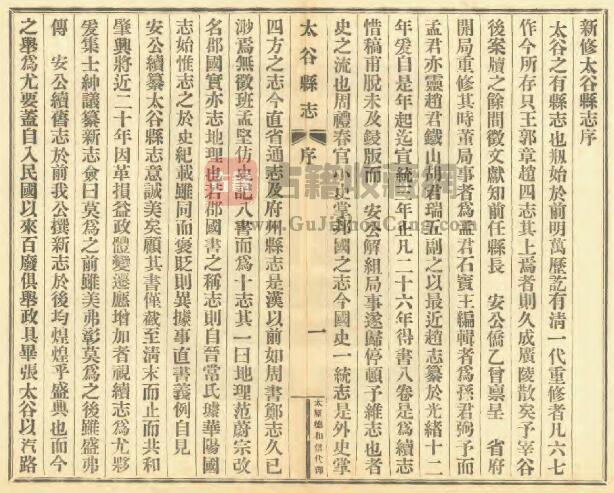 新修太谷縣志序
太谷之有縣志也刱始於前明萬歷訖有清一代重修者凡六七
作今所存只王郭章趙四志其上焉者則久成廣陵散矣予宰谷
後案牘之餘間徵文獻知前任縣長　安公僑乙曾稟呈　省府
開局重修其時董局事者為孟君石賓王編輯者為孫君弼予而
孟君亦靈趙君鐵山胡君瑞五副之以最近趙志纂於光緒十二
年爰自是年起迄宣統三年止凡二十六年得書八卷是為續志
惜稿甫脫未及鋟版而　安公解組局事遂歸停頓予維志也者
史之流也周禮春官小史掌邦國之志今國史一統志是外史掌
太谷縣志　序
一
太原德和信代印
四方之志今直省通志及府州縣志是漢以前如周書鄭志久已
渺焉無徵班孟堅仿史記八書而為十志其一曰地理范蔚宗改
名郡國實亦志地理也若郡國書之稱志則自晉常氏璩華陽國
志始惟志之於史紀載雖同而褒貶則異據事直書義例自見
安公續纂太谷縣志意誠美矣顧其書僅截至清末而止而共和
肇興將近二十年因革損益政體變遷應增加者視續志為尤夥
爰集士紳議纂新志僉曰莫為之前雖美弗彰莫為之後雖盛弗
傳　安公續舊志於前我公撰新志於後均煌煌乎盛典也而今
之舉為尤要蓋自入民國以來百廢俱舉政具畢張太谷以汽路
古籍收藏網
www.GuJiShouCang.com